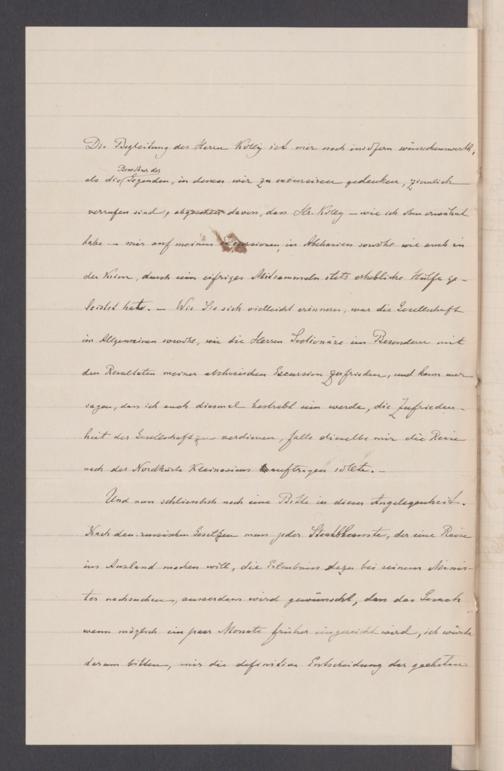 Die Begleitung des Herrn Kölly ist mir noch insofern wünschenswerth,
Bewohner der
als die Gegenden, in denen wir zu excursiren gedenken, ziemlich
verrufen sind, abgesehen davon, dass Hr. Kölly – wie ich oben erwähnt
habe – mir auf meinen Excursionen in Abchasien sowohl wie auch in
der Krim, durch sein eifriges Mitsammeln stets erhebliche Hülfe ge-
leistet hat. – Wie Sie sich vielleicht erinnern, war die Gesellschaft
im Allgemeinen sowohl, wie die Herren Sectionäre im Besonderen mit
den Resultaten meiner abchasischen Excursion zufrieden, und kann nur
sagen, dass ich auch diesmal bestrebt sein werde, die Zufrieden-
heit der Gesellschaft zu verdienen, falls dieselbe mir die Reise
nach der Nordküste Kleinasiens auftragen sollte. –
Und nun schliesslich noch eine Bitte in dieser Angelegenheit.
Nach den russischen Gesetzen muss jeder Staatbeamte, der eine Reise
ins Ausland machen will, die Erlaubniss dazu bei seinem Minis-
ter nachsuchen, ausserdem wird gewünscht, dass das Gesuch
wenn möglich ein paar Monate früher eingereicht wird, ich würde
darum bitten, mir die definitive Entscheidung der geehrten